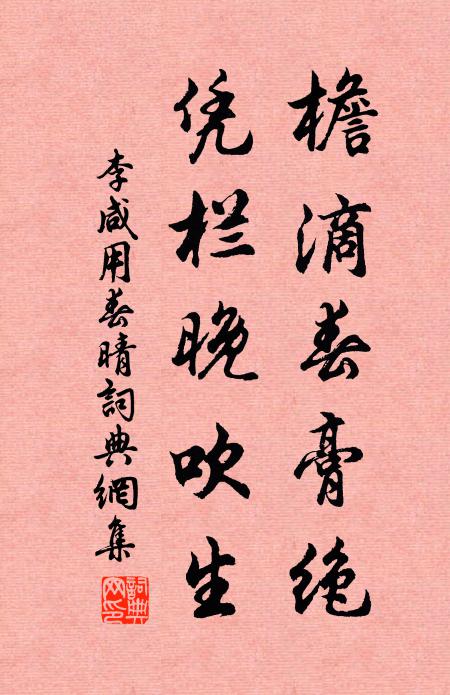 檐滴春膏绝
凭栏晚吹生
李咸用春晴詞典網集
詞典網印